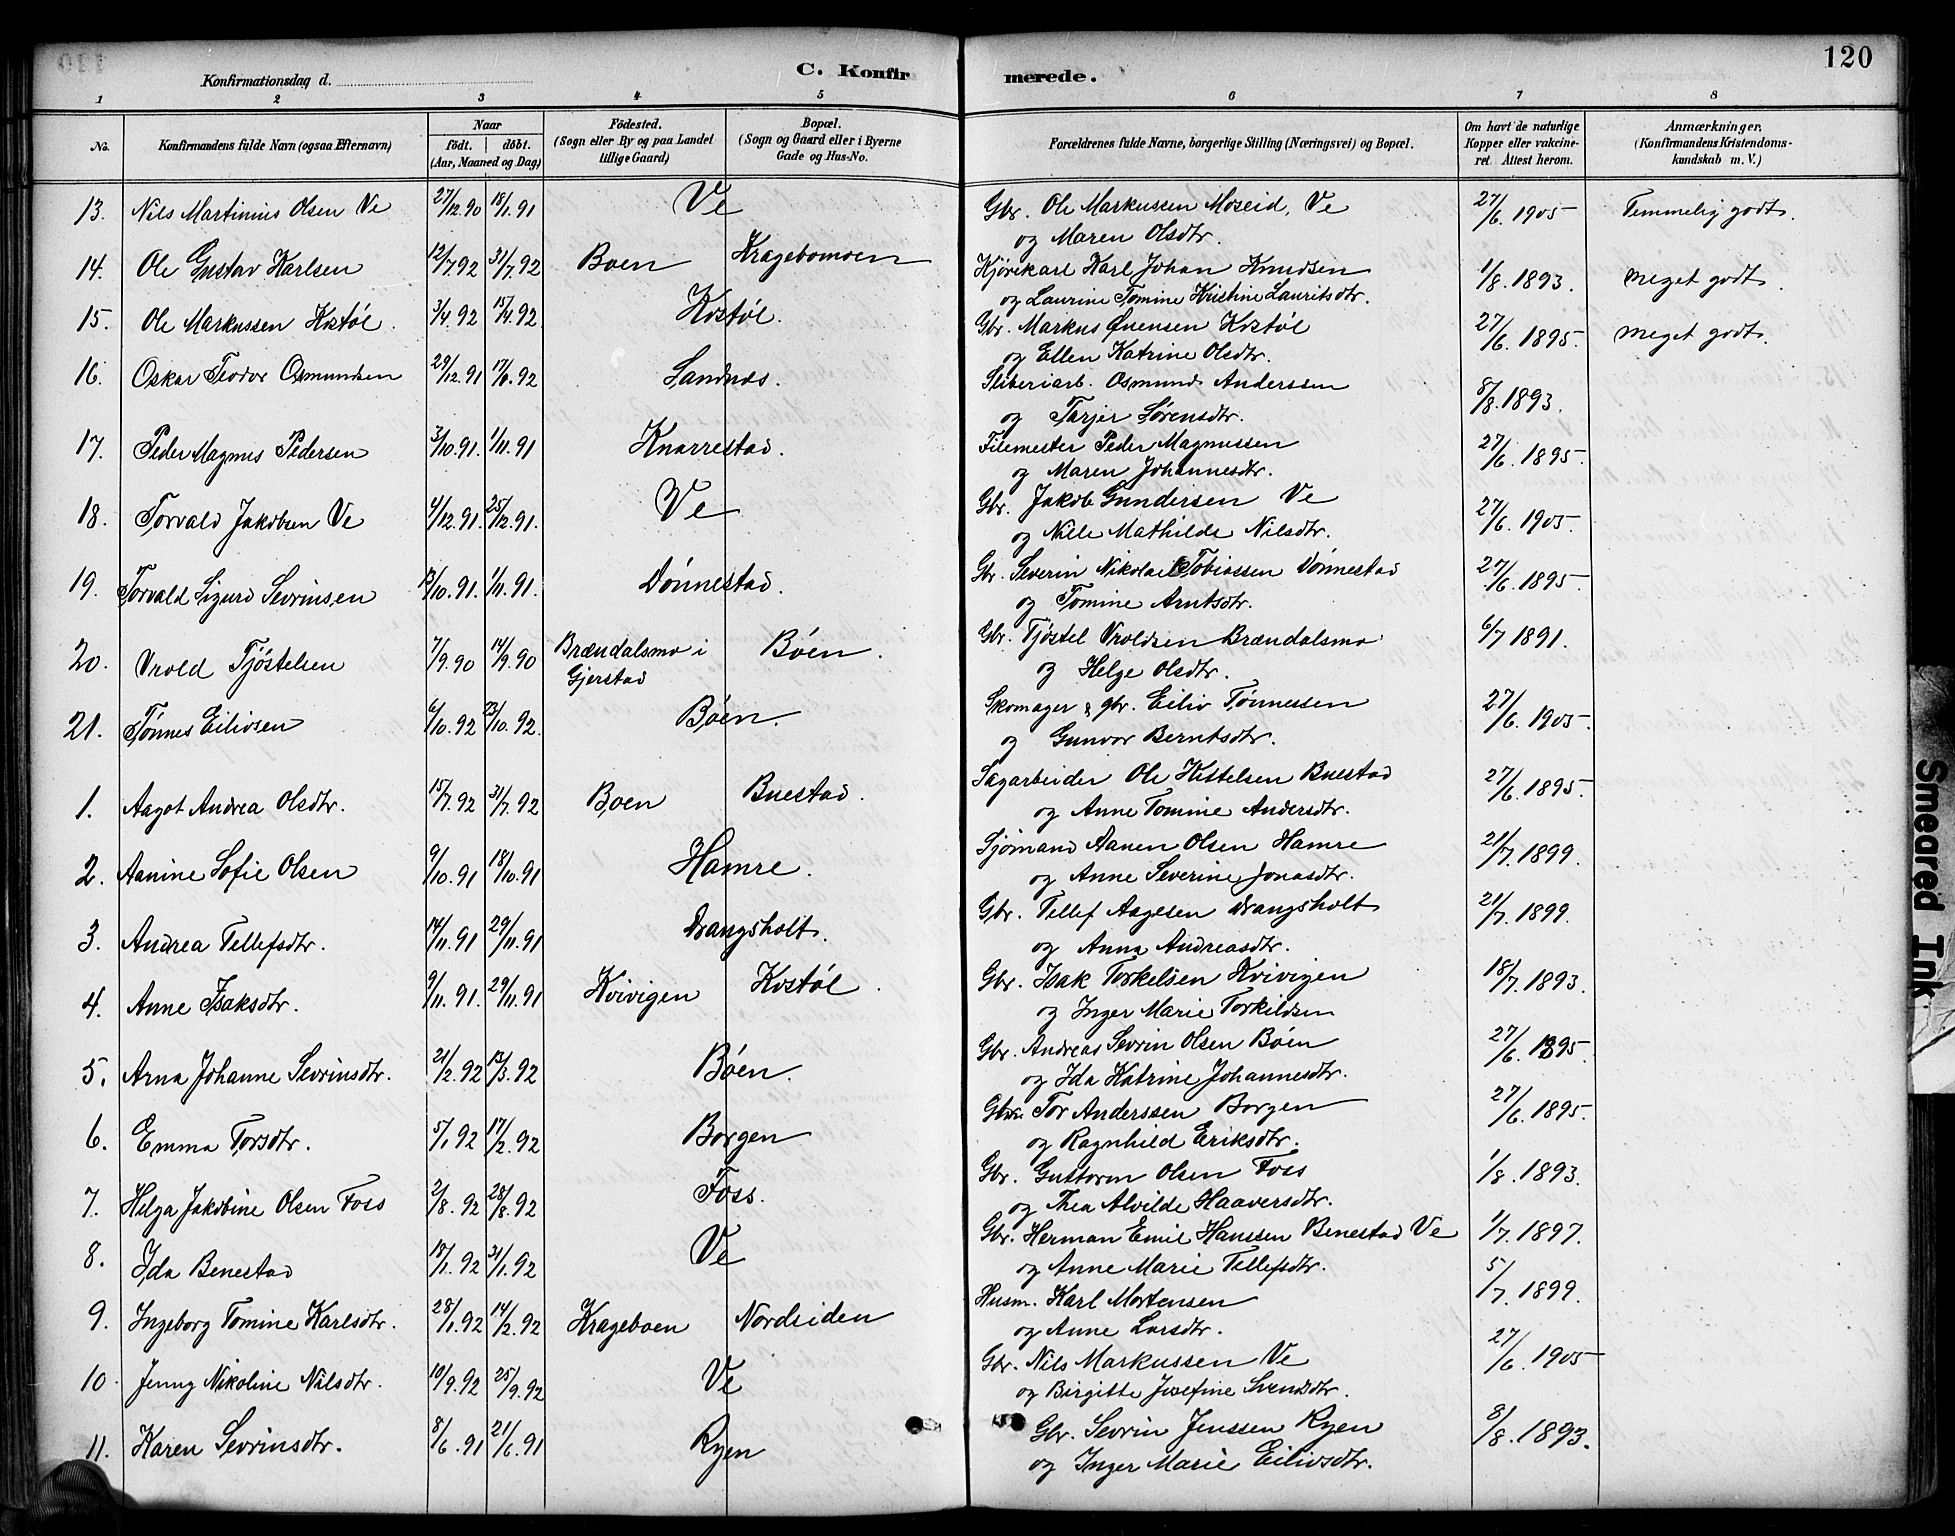 120
Konfirmationsdag d.
C. Konfirmerede.
1 2 3 4 5 6 7 8
No.
Konfirmandens fulde Navn (ogsaa Efternavn)
Naar
födt. döbt.
(Aar, Maaned og Dag)
Födested.
(Sogn eller By og paa Landet
tillige Gaard)
Bopæl.
(Sogn og Gaard eller i Byerne
Gade og Hus-No.
Forældrenes fulde Navne, borgerlige Stilling (Næringsvei) og Bopæl.
Om havt de naturlige
Kopper eller vakcine-
ret. Attest herom.
Anmærkninger.
(Konfirmandens Kristendoms-
kundskab m. V.)
13. Nils Martinius Olsen Ve 27/12.90 18/1.91 Ve Gbr. Ole Markussen Moseid, Ve 27/6 1905 Temmelig godt.
og Maren Olsdtr.
14. Ole Gustav Karlsen 12/7 92 31/7.92 Boen Kragebomoen Kjørekarl Karl Johan Knudsen 1/8.1893. Meget godt.
og Laurine Tomine Kristine Lauritsdtr.
15. Ole Markussen Kostøl. 3/4.92 15/4.92 Kostøl. Gbr. Markus Ønensen Kostøl 27/6.1895. Meget godt.
og Ellen Katrine Olsdtr.
16. Oskar Teodor Osmundsen 29/12.91 17/6.92 Sandnes. Sliberiarb. Osmund Anderssen 8/8.1893.
og Tarjer Sørensdtr.
17. Peder Magnus Pedersen 3/10.91. 1/11.91 Knarrestad. Filemester Peder Magnussen 27/6.1895.
og Maren Johannesdtr.
18. Torvald Jakobsen Ve 4/12.91. 25/12.91. Ve Gbr. Jakob Gundersen Ve 27/6.1905.
og Nille Mathilde Nilsdtr.
19. Torvald Sigurd Sevrinsen 13/10.91. 1/11.91. Dønnestad. Gbr. Severin Nikolai Tobiassen Dønnestad 27/6.1895.
og Tomine Arntsdtr.
20. Vrold Tjøstelsen 7/9.90 14/9.90 Brændalsmo i Gjerstad Böen. Gbr. Tjøstel Vroldsen Brændalsmo 6/7 1891.
og Helge Olsdtr.
21. Tønnes Eilivsen 6/10.92 23/10.92. Böen. Skomager & gbr. Eiliv Tønnessen 27/6.1905
og Gunvor Berntsdtr.
1. Aagot Andrea Olsdtr. 15/7.92 31/7.92 Boen Buestad. Sagarbeider Ole Kittelsen Buestad 27/6.1895.
og Anne Tomine Andersdtr.
2. Aanine Sofie Olsen 9/10.91 18/10.91 Hamre. Sjømand Aanen Olsen Hamre 21/7.1899.
og Anne Severine Jonasdtr.
3. Andrea Tellefsdtr. 14/11.91 29/11.91 Drangsholt. Gbr. Tellef Aagesen Drangsholt 21/7.1899.
og Anna Andreasdtr.
4. Anne Isaksdtr. 9/11.91. 29/11.91 Kvivigen Kostøl. Gbr. Isak Torkelsen Kvivigen 18/7.1893.
og Inger Marie Torkildsen
5. Arna Johanne Sevrinsdtr. 21/2.92 13/3.92 Böen. Gbr. Andreas Sevrin Olsen Böen 27/6.1895.
og Ida Katrine Johannesdtr.
6. Emma Torsdtr. 5/1.92 17/2.92 Borgen Gbr. Tor Anderssen Borgen 27/6.1895.
og Ragnhild Eriksdtr.
7. Helga Jakobine Olsen Foss 2/8.92 28/8.92 Foss. Gbr. Guttorm Olsen Foss 1/8.1893.
og Thea Alvilde Haaversdtr.
8. Ida Benestad 18/1.92 31/1.92 Ve Gbr. Herman Emil Hanssen Benestad Ve 1/7.1897.
og Anne Marie Tellefsdtr.
9. Ingeborg Tomine Karlsdtr. 28/1.92 14/2.92 Krageboen Nordsiden Husm. Karl Mortensen 5/7.1899.
og Anne Larsdtr.
10. Jenny Nikoline Nilsdtr. 10/9.92 25/9.92 Ve Gbr. Nils Markussen Ve 27/6.1905
og Birgitte Josefine Svendsdtr.
11. Karen Sevrinsdtr. 8/6.91 21/6.91 Ryen Gbr. Sevrin Jenssen Ryen 8/8.1893.
og Inger Marie Eilivsdtr.
Smeared Ink